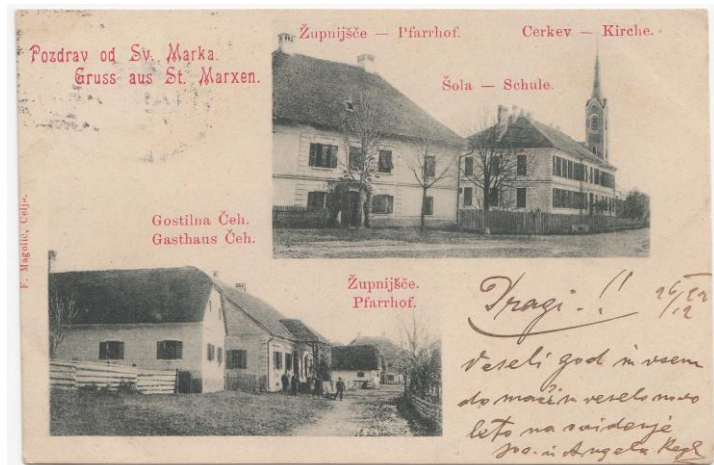 Pozdrav od Sv. Marka.
Gruss aus St. Marxen.
Župnijšče — Pfarrhof.
Cerkev — Kirche.
Šola — Schule.
Gostilna Čeh.
Gasthaus Čeh.
Župnijšče.
Pfarrhof.
F. Magolič, Celje.
Dragi.!!
Veseli god in vsem
domačin veselo novo
leto na svidenje
in Angela